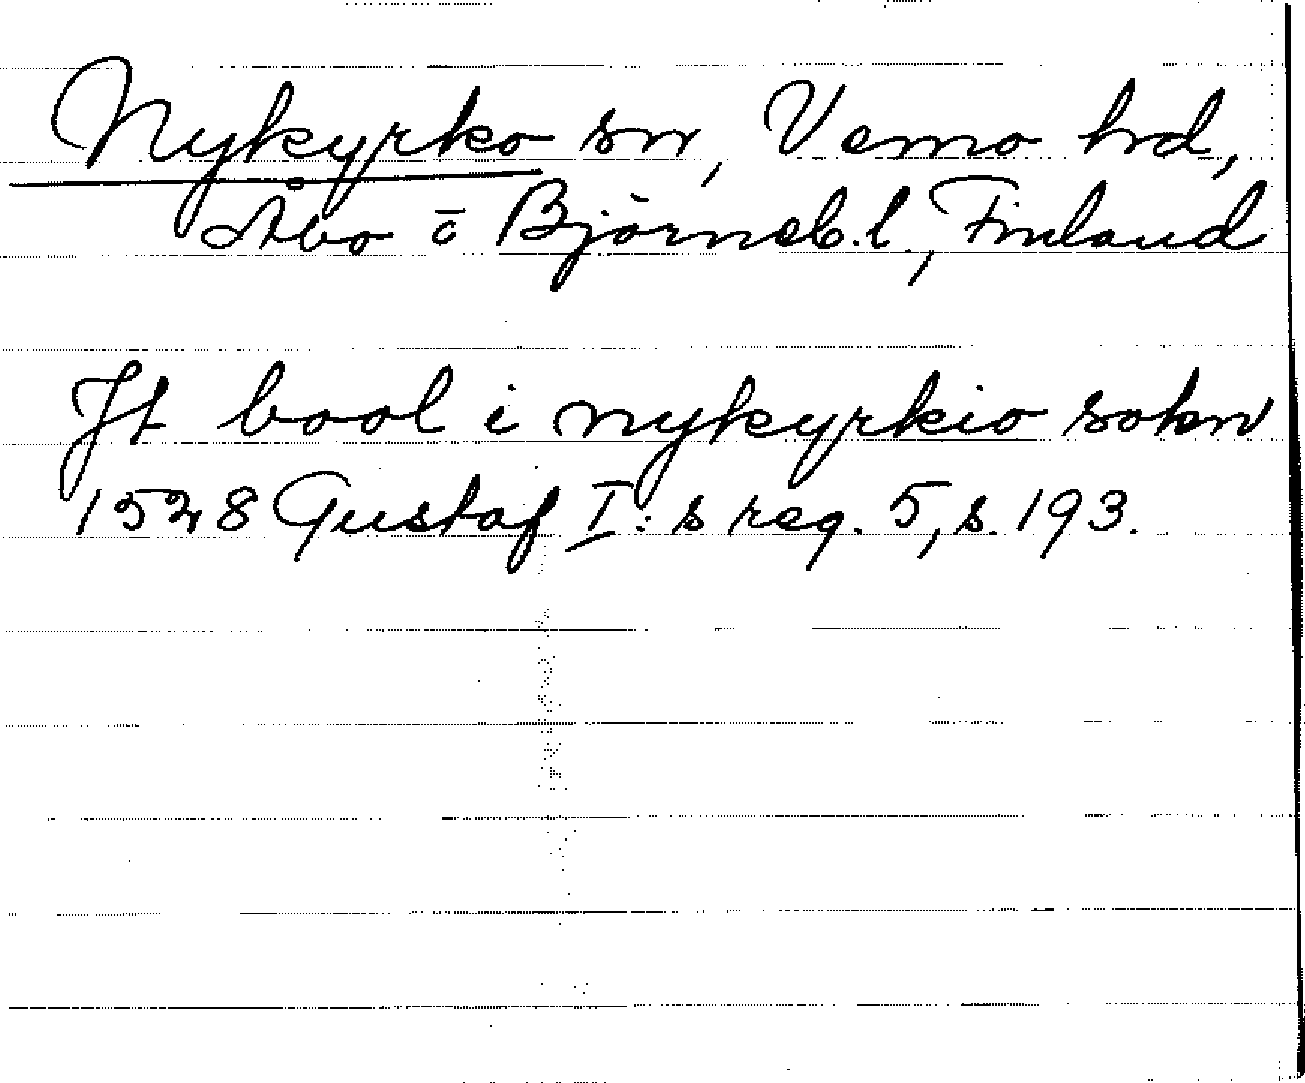 Nykyrko sn, Vemo hd,
Åbo o Björneb.l., Finland
Jt bool i nykyrkio sokn
1528 Gustaf I:s reg. 5, s. 193.